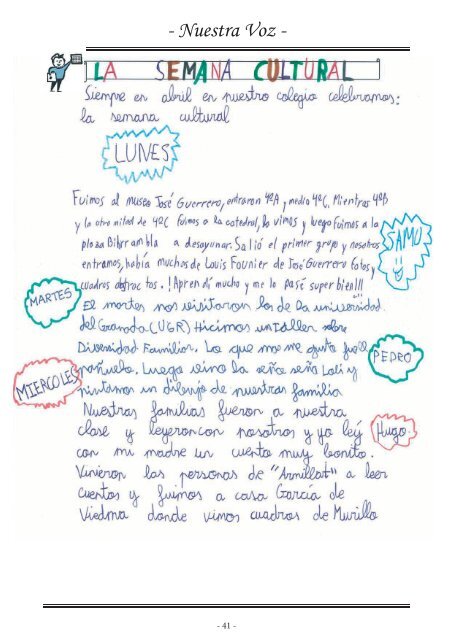 - Nuestra Voz -
LA SEMANA CULTURAL
Siempre en abril en nuestro colegio celebramos:
la semana cultural
LUNES
Fuimos al museo José Guerrero, entraron 4ºA y medio 4ºC. Mientras 4ºB
y la otra mitad de 4ºC fuimos a la catedral, la vimos y luego fuimos a la
plaza Bibrrambla a desayunar. Salió el primer grupo y nosotros
entramos, había muchos de Louis Founier de José Guerrero fotos y
cuadros abstractos. !Aprendí mucho y me lo pasé super bien!!!
SAMU
MARTES
El martes nos visitaron los de la universidad
del Granada (UGR) Hicimos un taller sobre
Diversidad Familiar. Lo que mas me gusto fue el
pañuelo. Luego vino la seño Loli y
pintamos un dibujo de nuestras familia
PEDRO
MIERCOLES
Nuestras familias fueron a nuestra
clase y leyeron con nosotros y yo leý
con mi madre un cuento muy bonito.
Vinieron las personas de "Armillat" a leer
cuentos y fuimos a casa García de
Viedma donde vimos cuadros de Murillo
Hugo
- 41 -